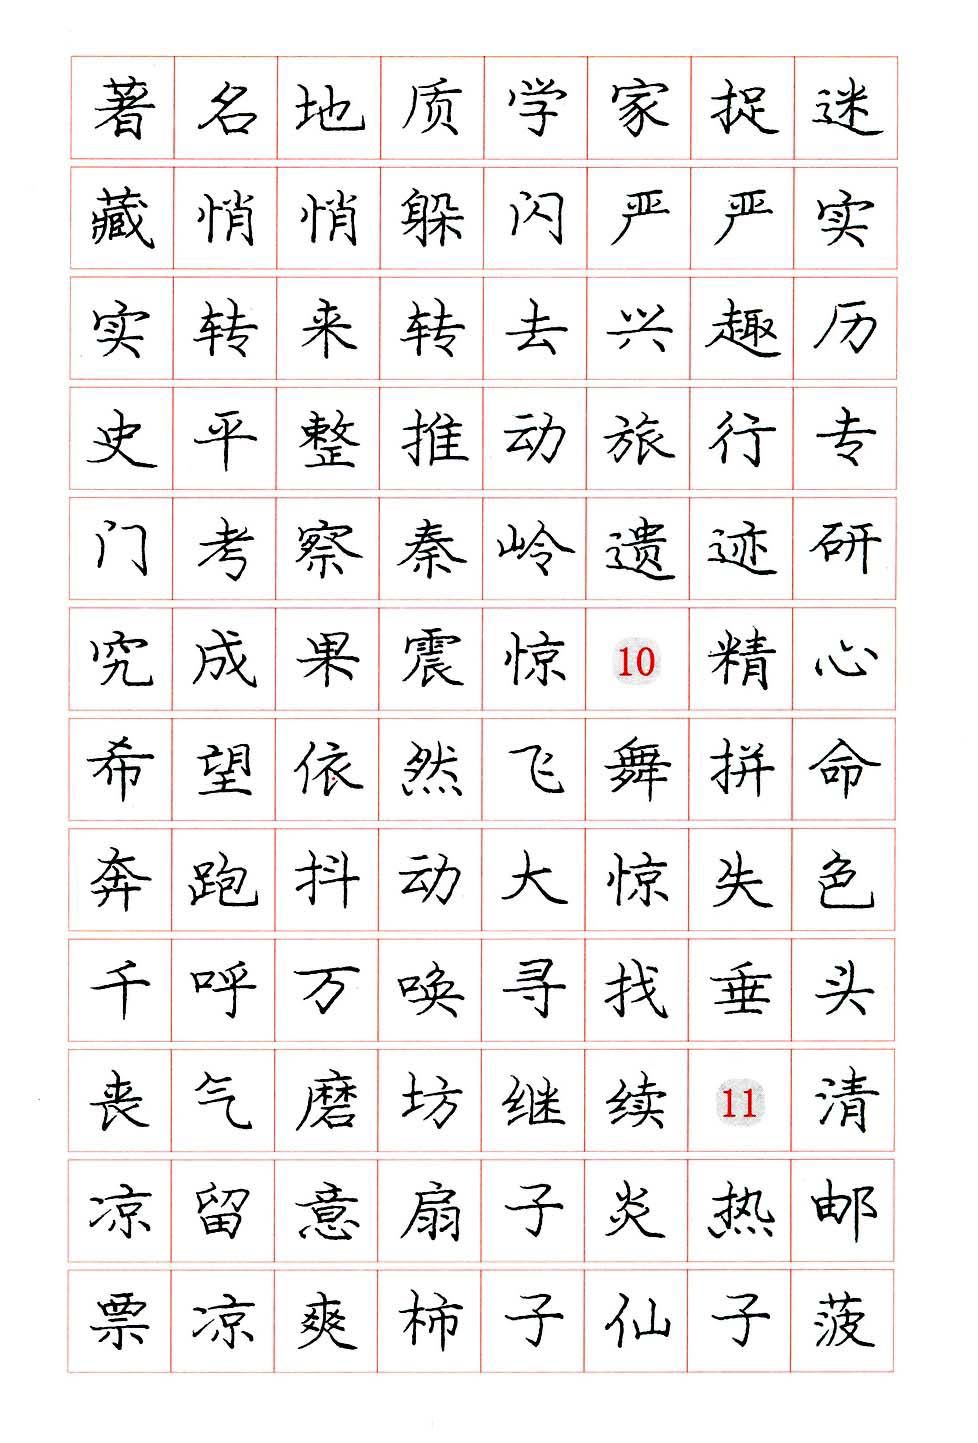 著名地质学家捉迷
藏悄悄躲闪严严实
实转来转去兴趣历
史平整推动旅行专
门考察秦岭遗迹研
究成果震惊10精心
希望依然飞舞拼命
奔跑抖动大惊失色
千呼万唤寻找垂头
丧气磨坊继续11清
凉留意扇子炎热邮
票凉爽柿子仙子菠